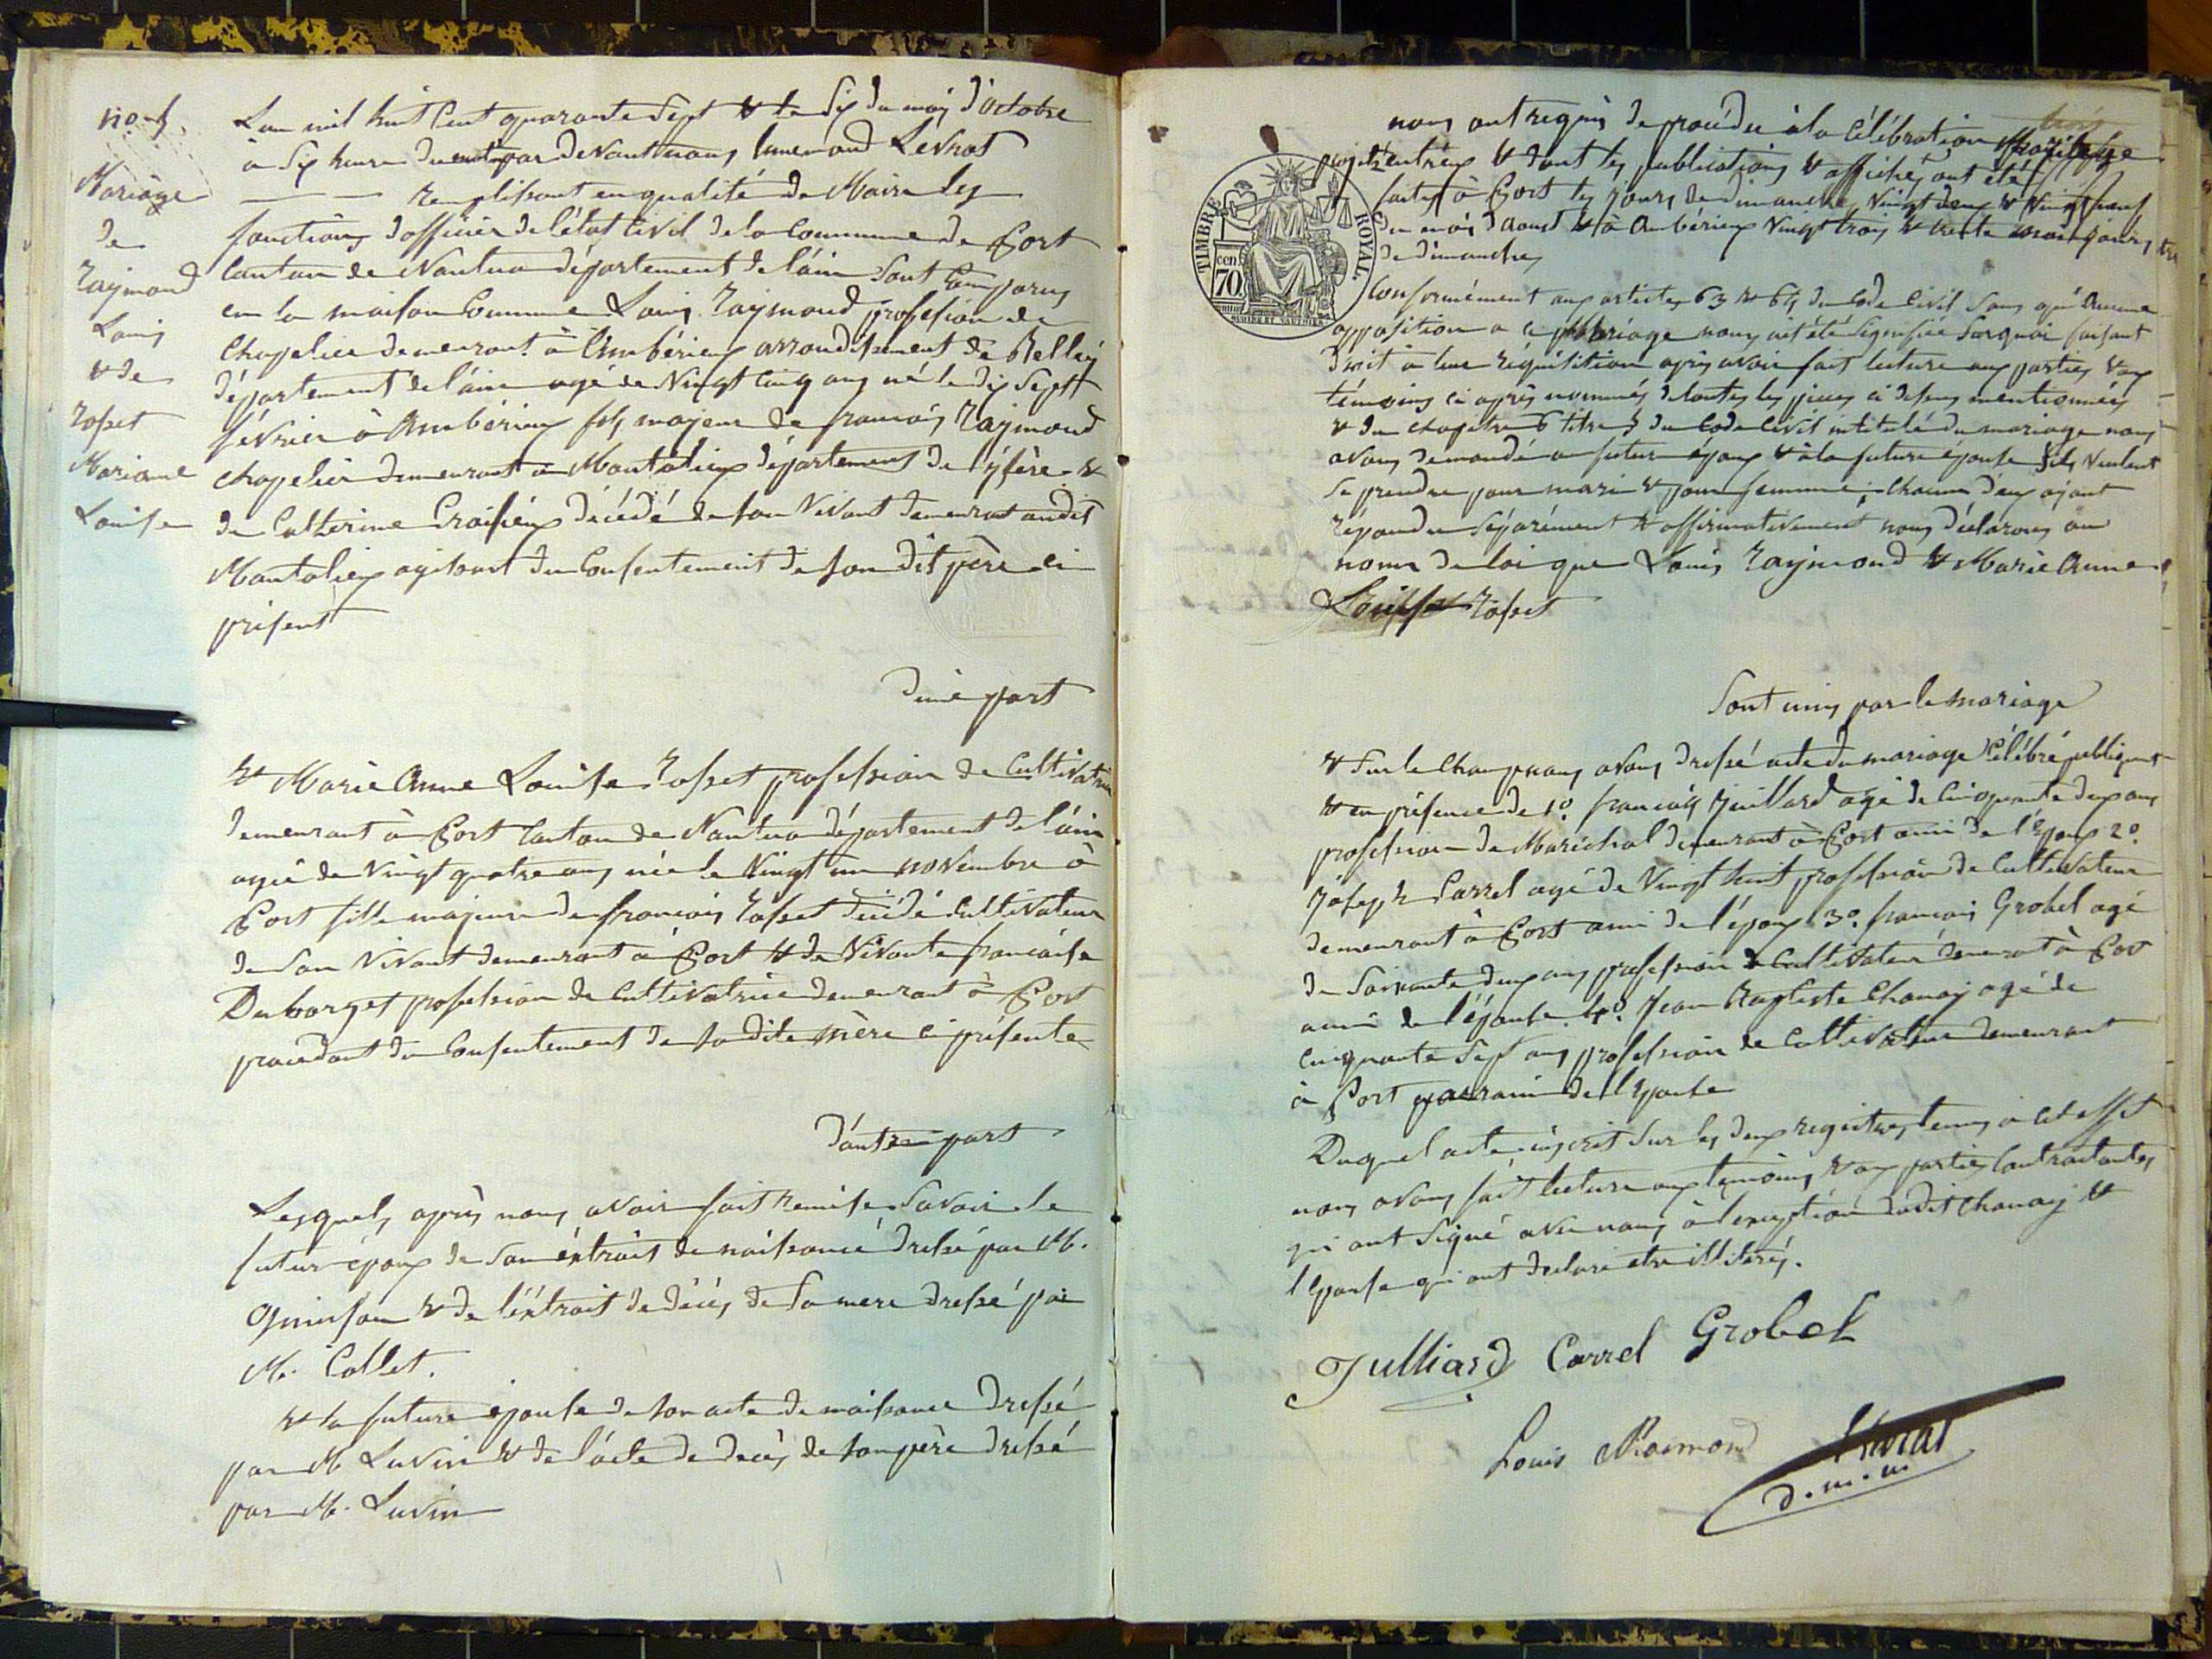 Mariage
de
Raymond
Louis
& de
Rosset
Marianne
Louise
L'an mil huit Cent quarante Sept & le Six du mois d'octobre
à Six heures du par devant nous Levrat
remplissant en qualité de Maire les
fonctions d'officier de l'état civil de la Commune de Port
Canton de Nantua département de l'ain Sont Comparus
en la maison Commune Louis Raymond profession de
Chapelier demeurant à Ambérieux arrondissement de Belley
département de l'ain agé de Vingt Cinq ans né le dix Sept
février à Ambérieux fils majeur de françois Raymond
chapelier demeurant à Montalieu département de l'ysère &
de Catherine décédé de son Vivant demeurant audit
Montalieu agissant du Consentement de son dit père ci
présent
d'une part
& Marie Anne Louise Rosset profession de Cultivatrice
demeurant à Port Canton de Nantua département de l'ain
agée de Vingt quatre ans née le Vingt un novembre à
Port fille majeure de françois Rosset décédé Cultivateur
de son Vivant demeurant à Port & de Vivante françoise
Duborget profession de Cultivatrice demeurant à Port
procédant du Consentement de sa dite mère ci présente
d'autre part
Lesquels après nous avoir fait remise Savoir le
futur époux de son éxtrait de naissance dressé par M.
Quinson & de l'éxtrait de décès de sa mere dressé par
M. Collet.
& la future épouse de son acte de naissance dressé
par M. Luvin & de l'acte de décès de son père dressé
par M. Luvin
nous ont requis de procéder à la Célébration
projeté entr'eux & dont les publications & affiches ont été
faites à Port les jours de dimanches Vingt deux & Vingt neuf
du mois d'aoust & à Ambérieux Vingt trois & trente jours
de dimanches
Conformément aux articles 63 & 64 du Code Civil Sans qu'Aucune
opposition a ce Mariage nous ait été Signifiée Sur quoi faisant
droit à leur réquisition après avoir fait lecture aux parties & aux
témoins ci après nommés de toutes les pieces ci dessus mentionnées
& du chapitre 6 titre 5 du Code Civil intitulé du mariage nous
avons demandé au futur époux & à la future épouse S'ils Veulent
Se prendre pour mari & pour femme; Chacun d'eux ayant
répondu Séparément & affirmativement nous déclarons au
nom de loi que Louis Raymond & Marie Anne
Louise Rosset
Sont unis par le mariage
& Sur le Champ nous avons dressé acte du mariage Célébré publiqment
& en présence de 1º. françois Juillard agé de Cinquante deux ans
profession de Maréchal demeurant à Port ami de l'Epoux 2º.
Joseph Carrel agé de Vingt huit profession de Cultivateur
demeurant à Port ami de l'époux 3º. françois Grobel agé
de Soixante deux ans profession de Cultivateur demeurant à Port
ami de l'épouse. 4º. Jean Baptiste Chanay agé de
cinquante Sept ans profession de Cultivateur demeurant
à Port parrain de l'Epouse
Duquel acte inscrit sur les deux registres tenus à Cet effet
nous avons fait lecture aux témoins & aux parties Contractantes
qui ont Signé avec nous à l'exception dudit Chanay &
l'Epouse qui ont déclaré etre illitérés.
TIMBRE ROYAL.
cen
70.
Julliard Carrel Grobel
Louis Raimond Levrat
d. m. m